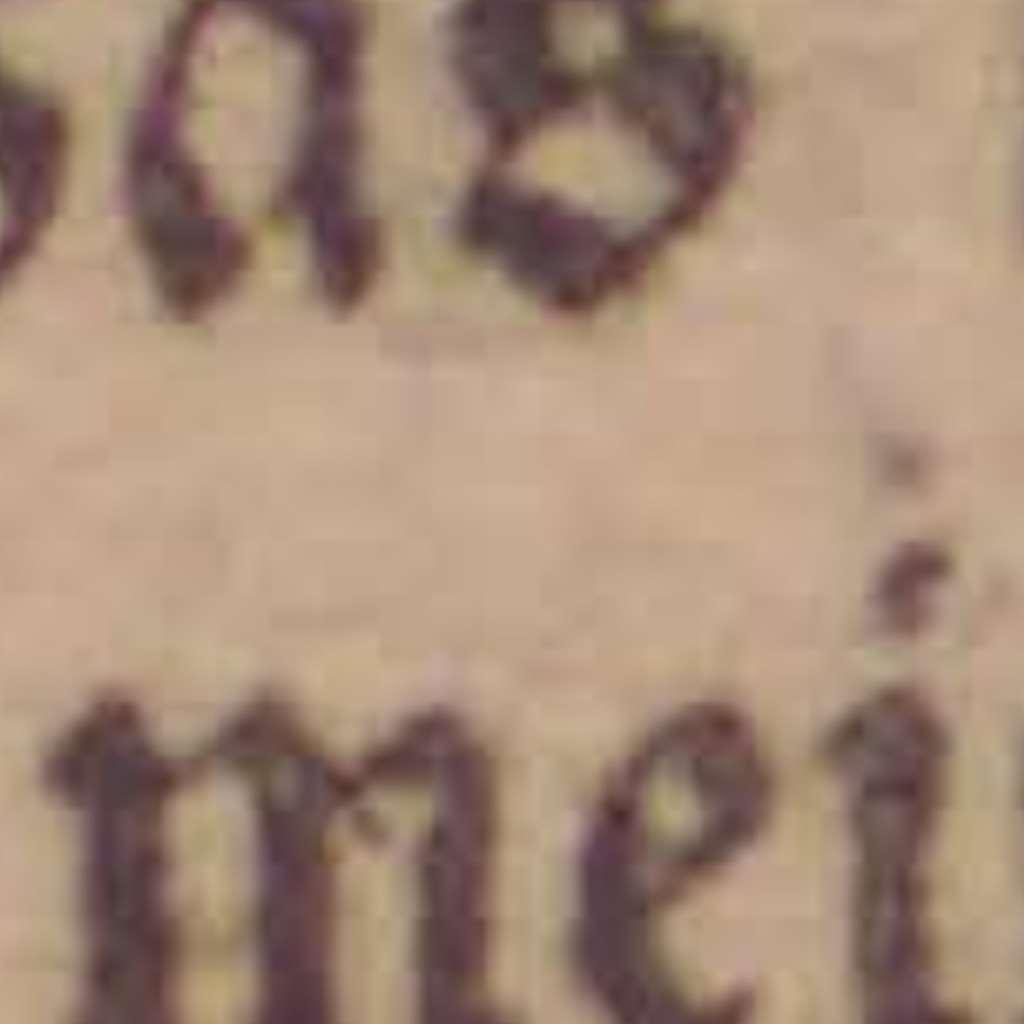 as
mei